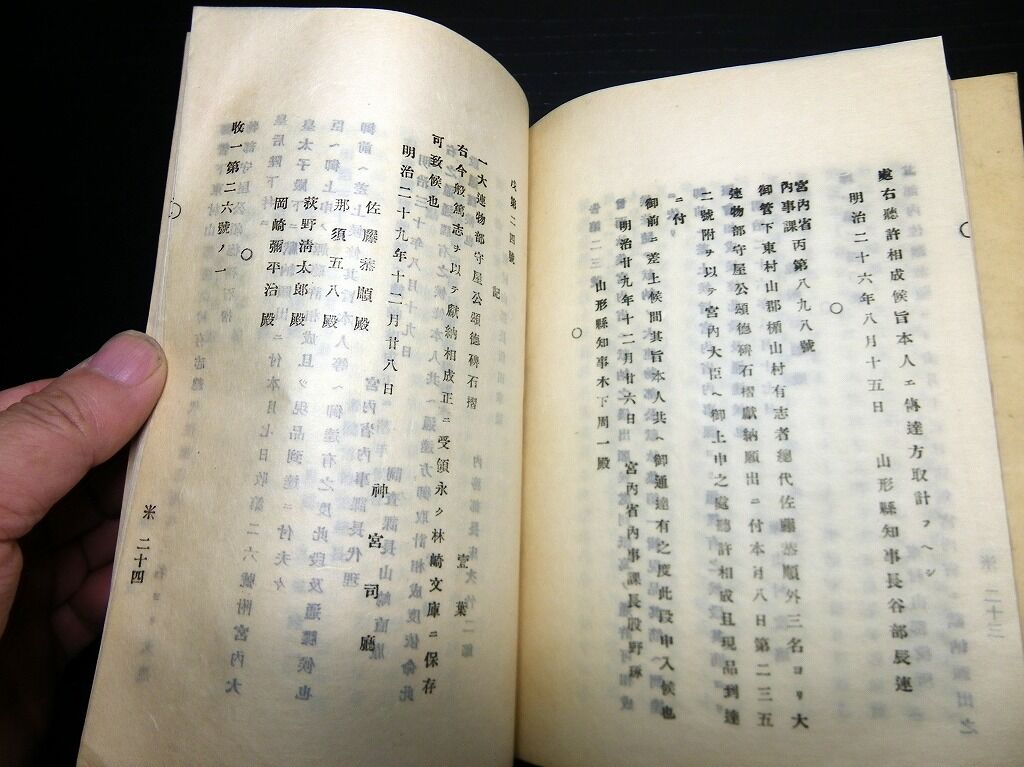 處右聽許相成候旨本人エ傳達方取計ヲヘシ
明治二十六年八月十五日　山形縣知事長谷部辰連
○
宮內省丙第八九八號
內事課
御管下東村山郡楯山村有志者總代佐藤蒸順外三名ヨリ大
連物部守屋公頌德碑石摺獻納願出ニ付本月八日第二三五
二號附ヲ以テ宮內大臣ヘ御上申之處聽許相成且現品到達
ニ付
御前ニ差上候間其旨本人共ヘ御通達有之度此段申入候也
明治廿九年十二月廿六日　宮內省內事課長股野琢
山形縣知事木下周一殿
○
戊第二四號
記
一大連物部守屋公頌德碑石摺　壹葉
右今般篤志ヲ以テ獻納相成正ニ受領永ク林崎文庫ニ保存
可致候也
明治二十九年十二月廿八日　神宮司廳
佐藤蒸順殿
那須五八殿
荻野淸太郎殿
岡崎彌平治殿
○
收一第二六號ノ一
米　二十四